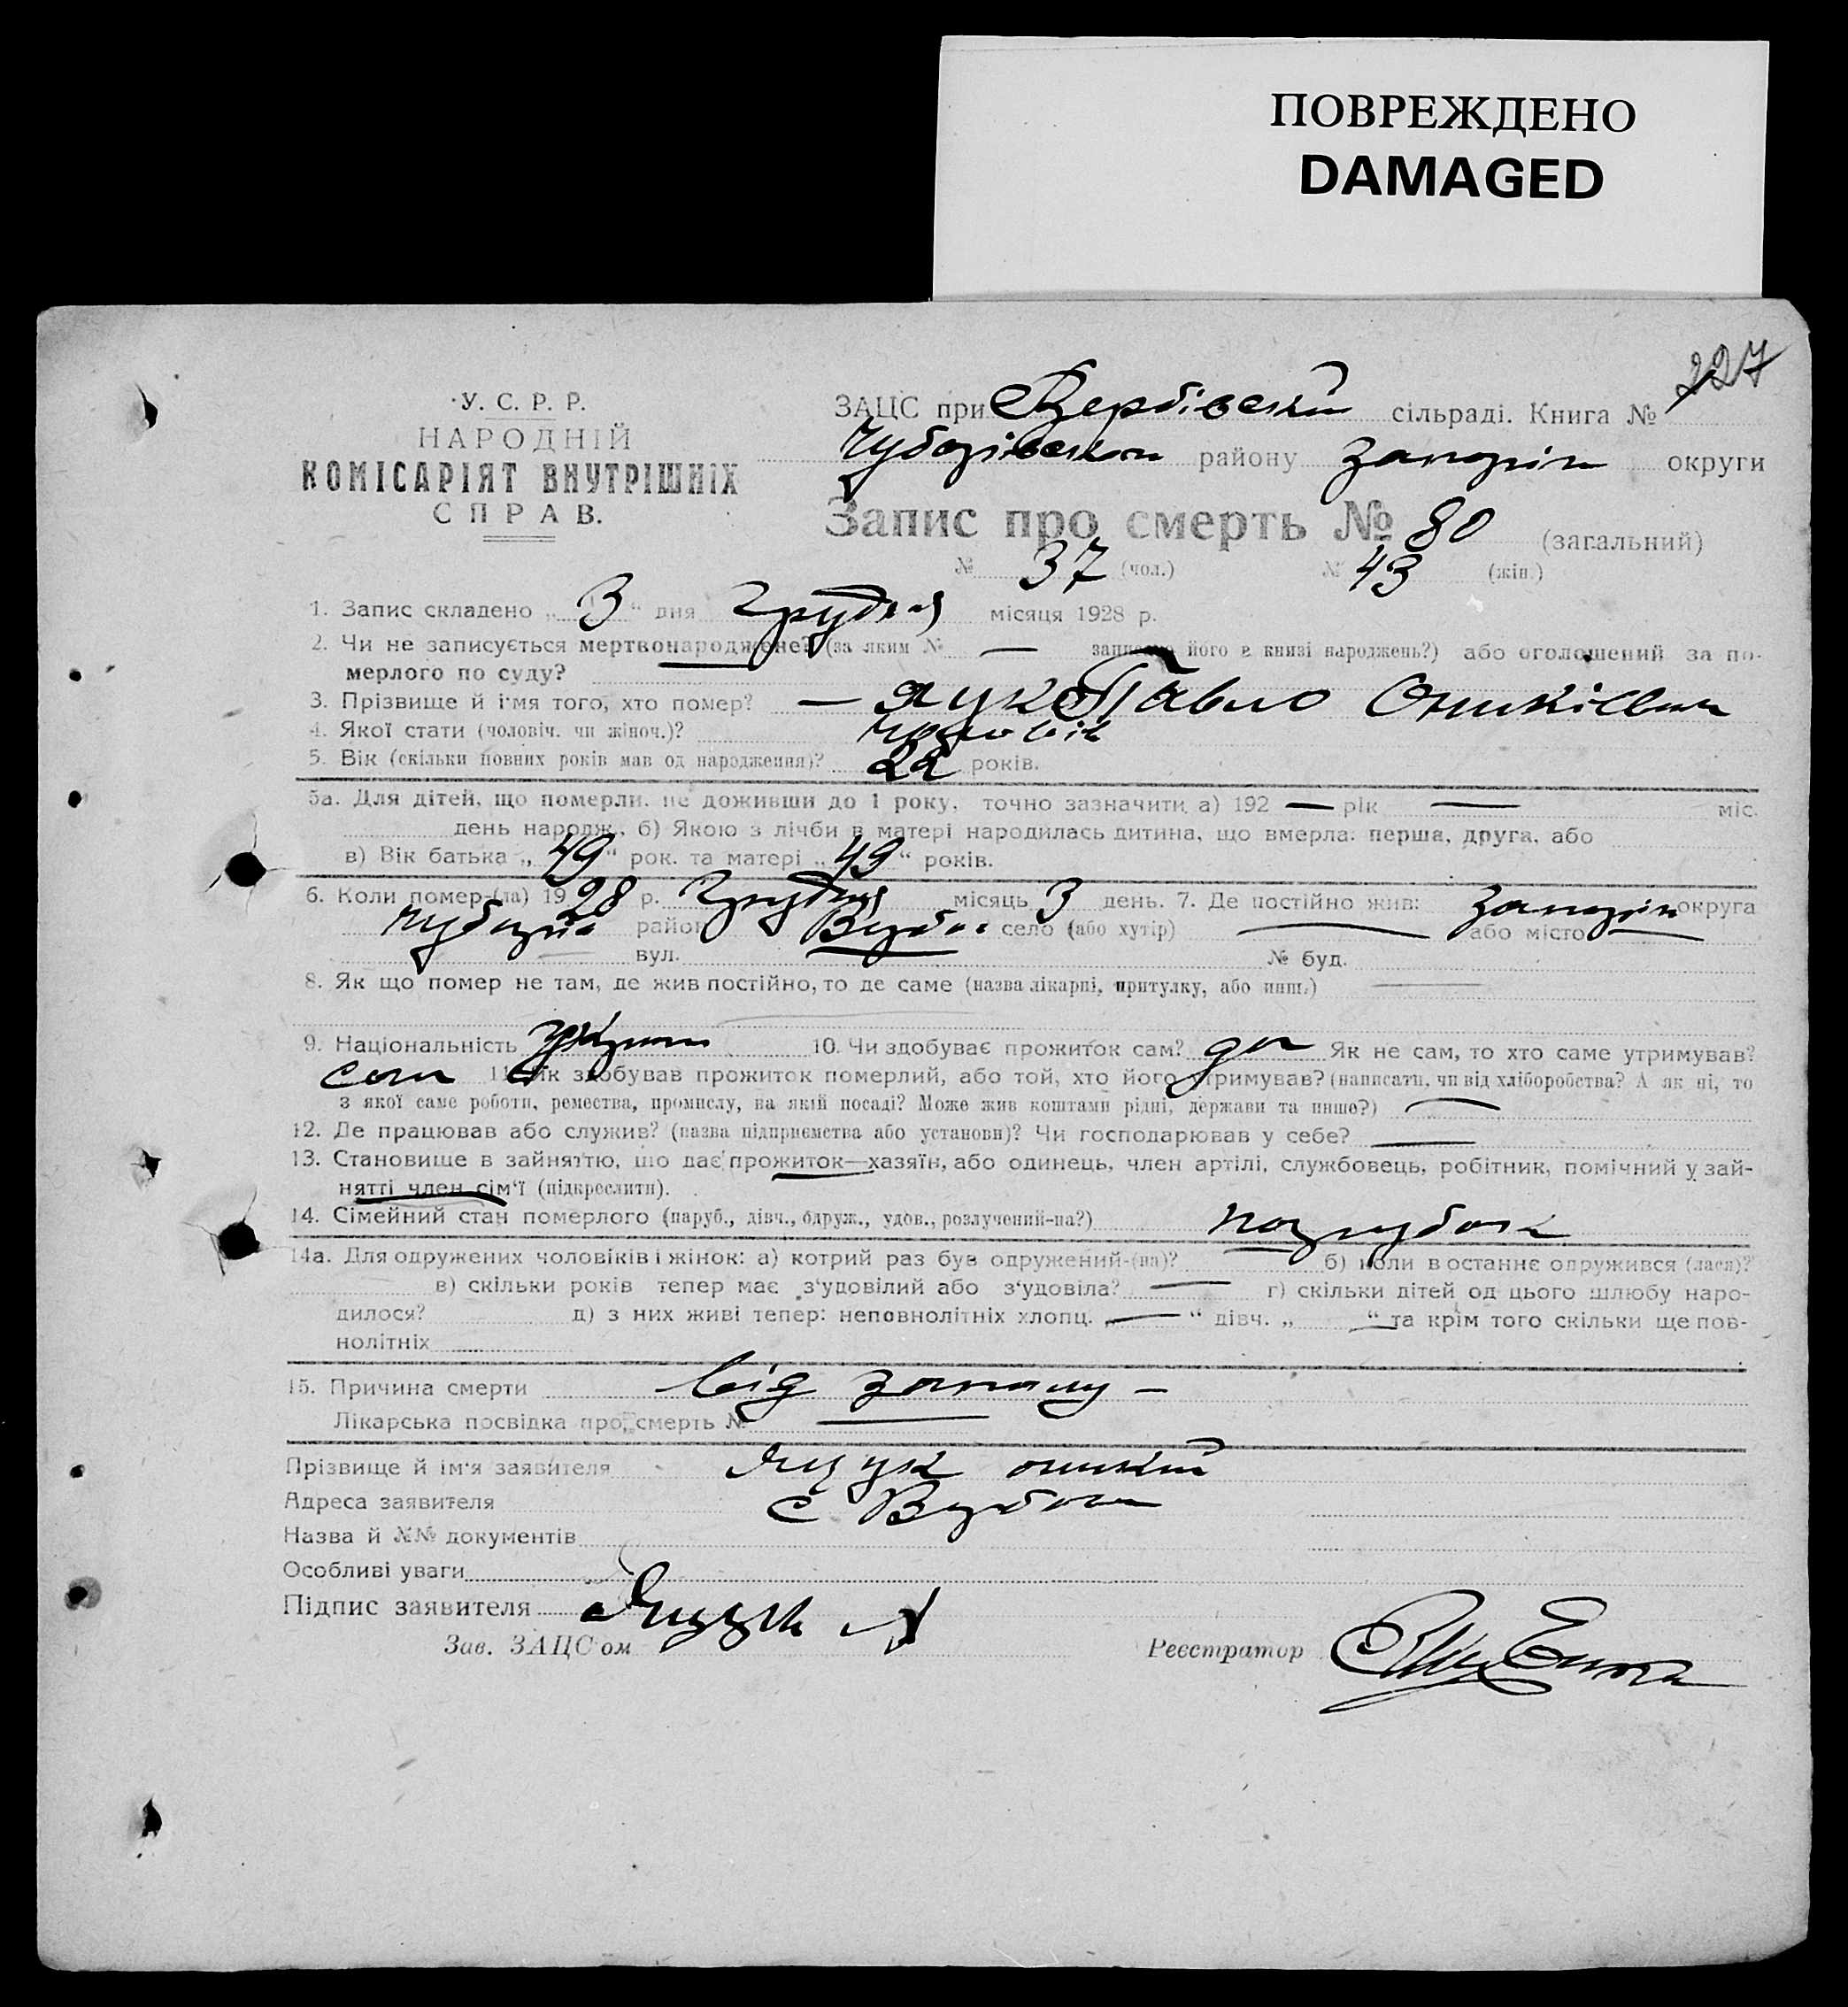 ПОВРЕЖДЕНО
DAMAGED
227
У. С. Р. Р.
НАРОДНІЙ
КОМІСАРІЯТ ВНУТРІШНІХ
СПРАВ.
ЗАЦС при Вербівській сільраді. Книга №
району округи
Запис про смерть № 80 (загальний)
№ 37 (чол.) № 43 (жін.)
1. Запис складено „ 3 “ дня Грудня місяця 1928 р.
2. Чи не записується мертвонароджене? (за яким № — записано його в книзі народжень?) або оголошений за по-
мерлого по суду? —
3. Прізвище й ім'я того, хто помер? — Павло Оникієвич
4. Якої стати (чоловіч. чи жіноч.)? чоловік
5. Вік (скільки повних років мав од народження)? 22 років.
5а. Для дітей, що померли, не доживши до 1 року, точно зазначити а) 192 — рік — міс.
день народж., б) Якою з лічби в матері народилась дитина, що вмерла: перша, друга, або
в) Вік батька „ 49 “ рок. та матері „ 49 “ років.
6. Коли помер-(ла) 1928 р. Грудня місяць 3 день. 7. Де постійно жив: округа
район село (або хутір) — або місто —
вул. № буд.
8. Як що помер не там, де жив постійно, то де саме (назва лікарні, притулку, або инш.) —
9. Національність 10. Чи здобуває прожиток сам? Як не сам, то хто саме утримував?
сам 11. Як здобував прожиток померлий, або той, хто його утримував? (написати, чи від хліборобства? А як ні, то
з якої саме роботи, ремества, промислу, на якій посаді? Може жив коштами рідні, держави та инше?) —
12. Де працював або служив? (назва підприємства або установи)? Чи господарював у себе? —
13. Становище в зайняттю, що дає прожиток—хазяїн, або одинець, член артілі, службовець, робітник, помічний у зай-
нятті член сім'ї (підкреслити).
14. Сімейний стан померлого (паруб., дівч., одруж., удов., розлучений-на?)
14а. Для одружених чоловіків і жінок: а) котрий раз був одружений-(на)? — б) коли в останнє одружився (лася)?
в) скільки років тепер має з'удовілий або з'удовіла? — г) скільки дітей од цього шлюбу наро-
дилося? д) з них живі тепер: неповнолітніх хлопц. „ — “ дівч. „ — “ та крім того скільки ще пов-
нолітніх
15. Причина смерти від —
Лікарська посвідка про смерть № —
Прізвище й ім'я заявителя Яцук Оникій
Адреса заявителя с
Назва й №№ документів
Особливі уваги
Підпис заявителя Яцук
Зав. ЗАЦС'ом Реєстратор